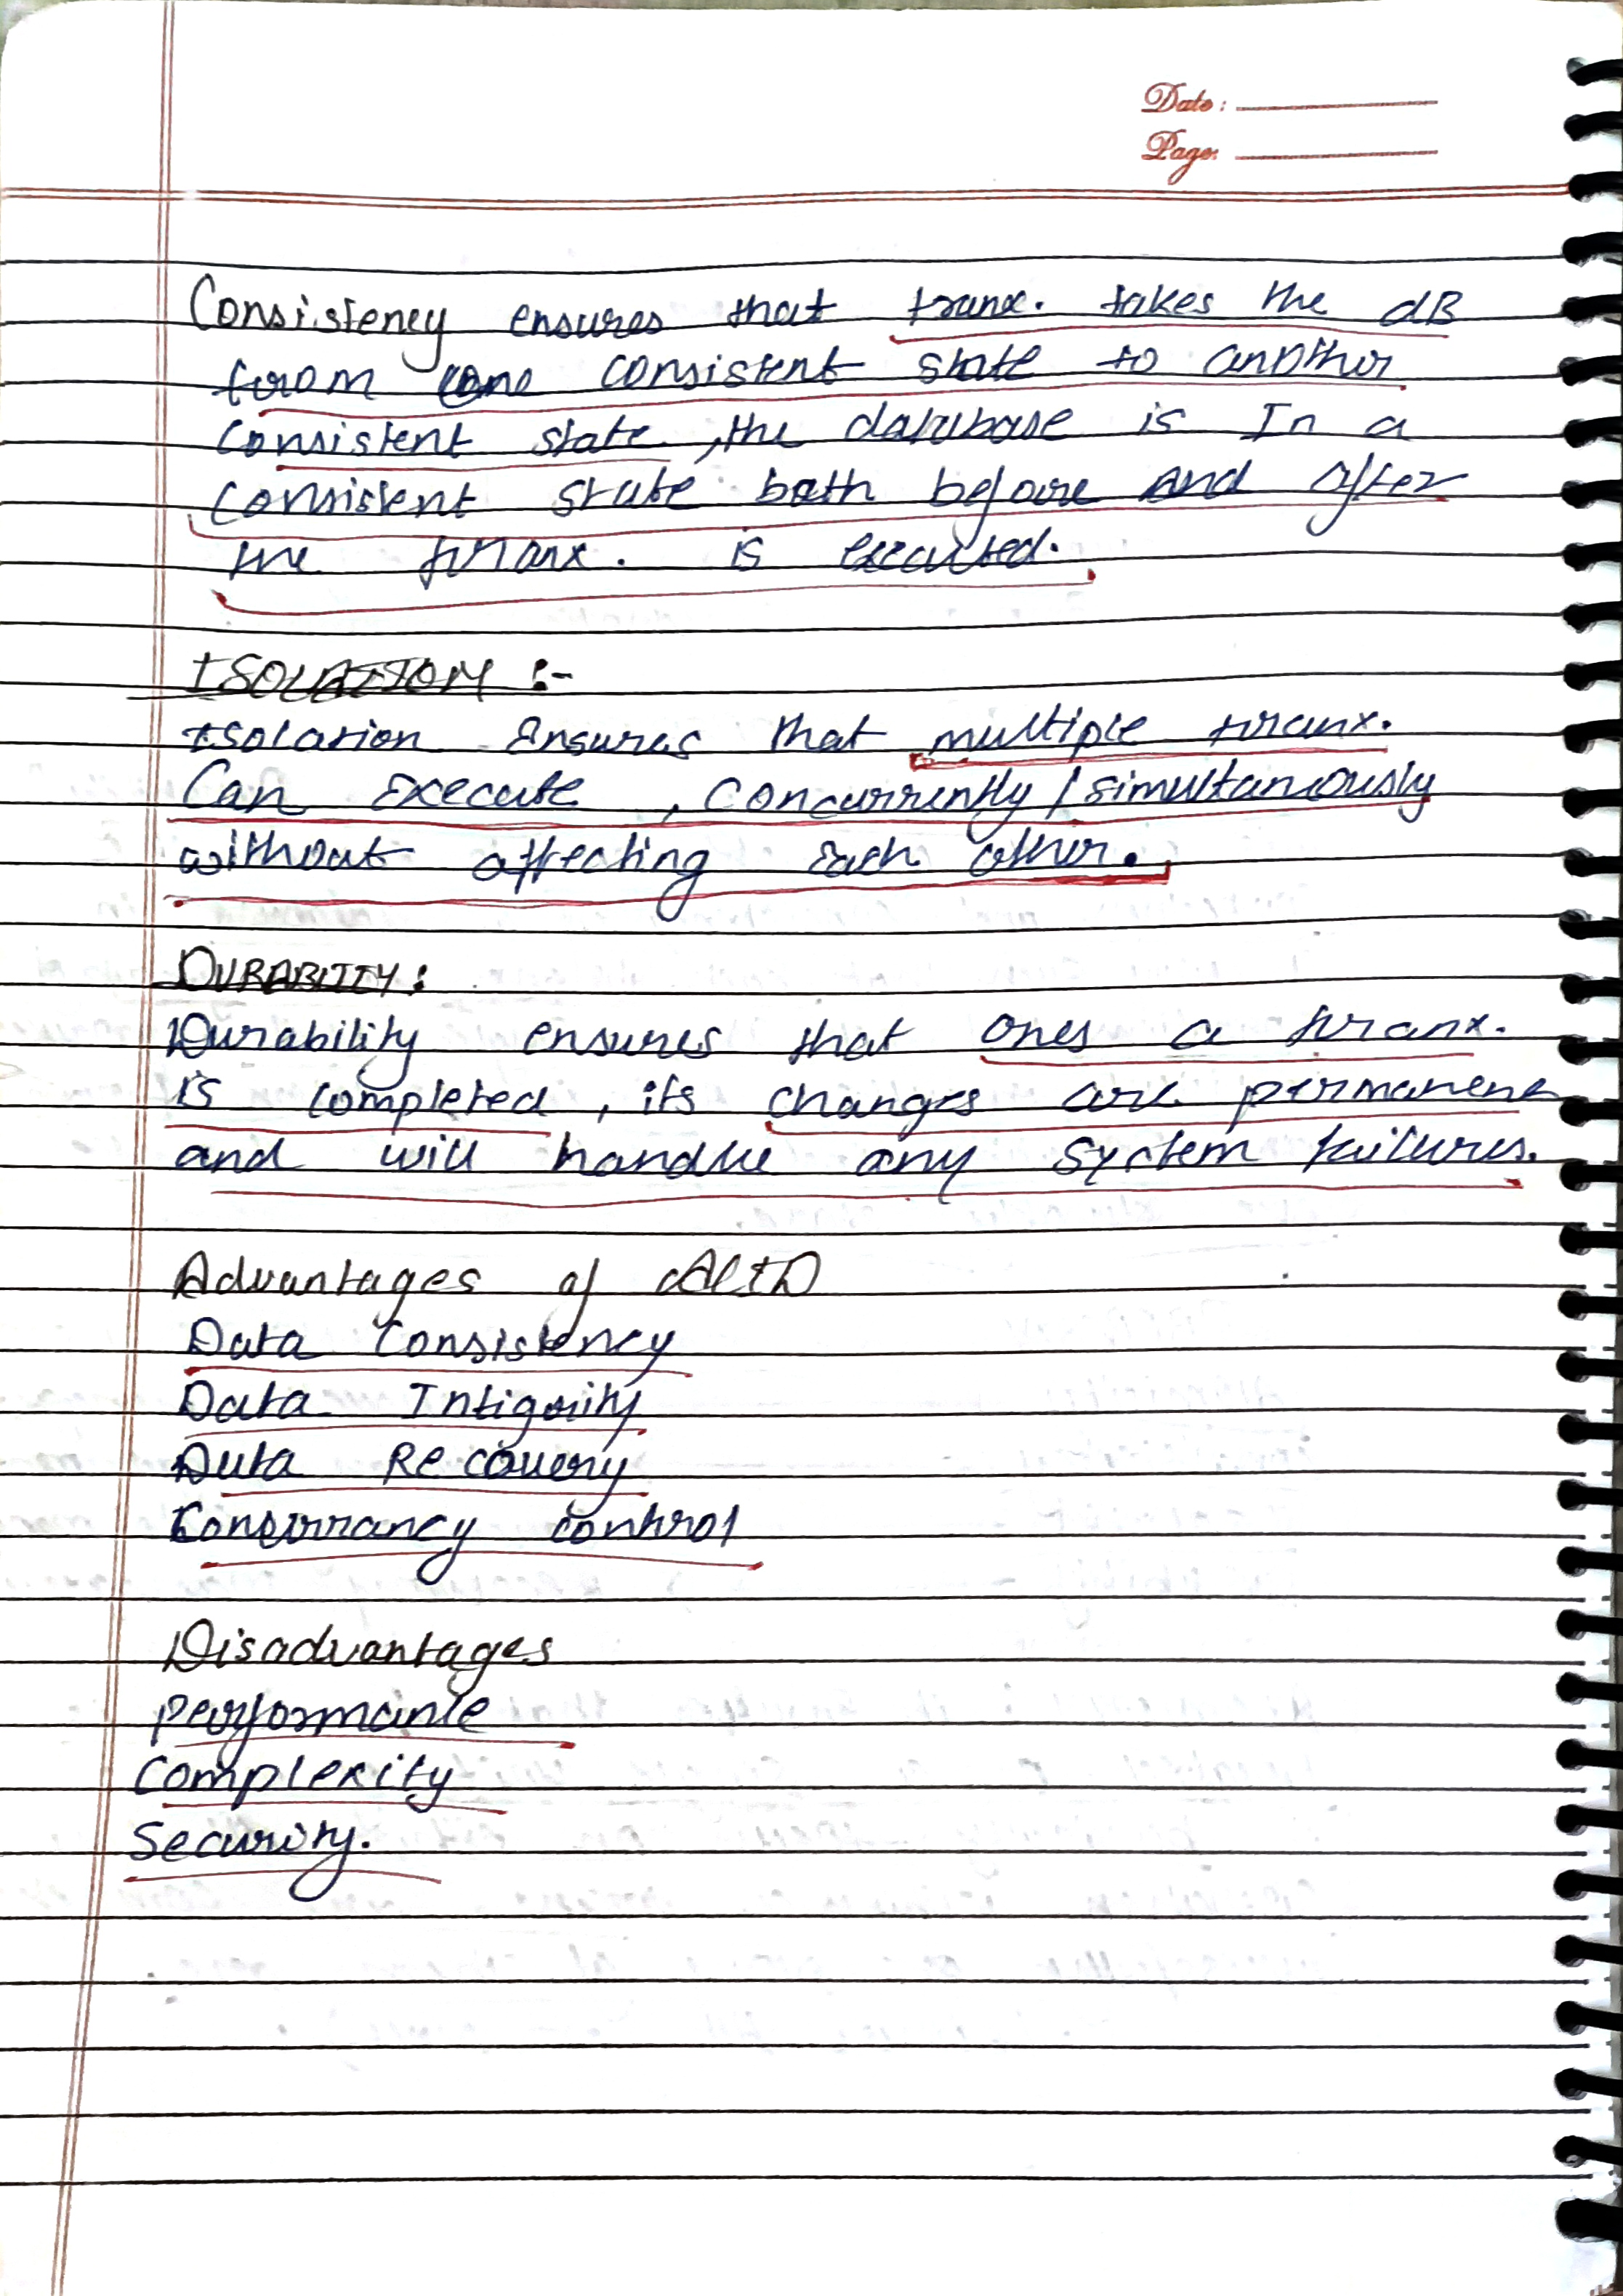 Date:
Page:
Consistency ensures that tranx. takes the dB
from one consistent state to another
consistent state, the database is In a
consistent state both before and after
the tranx. is executed.
ISOLATION :-
Isolation Ensures that multiple tranx.
Can Execute, concurrently / simultaneously
without affecting Each other.
DURABILITY:
Durability ensures that ones a tranx.
is completed, its changes are permanent
and will handle any system failures.
Advantages of ACID
Data Consistency
Data Intigrity
Data Recovery
Concurrancy control
Disadvantages
Performance
Complexity
Security.